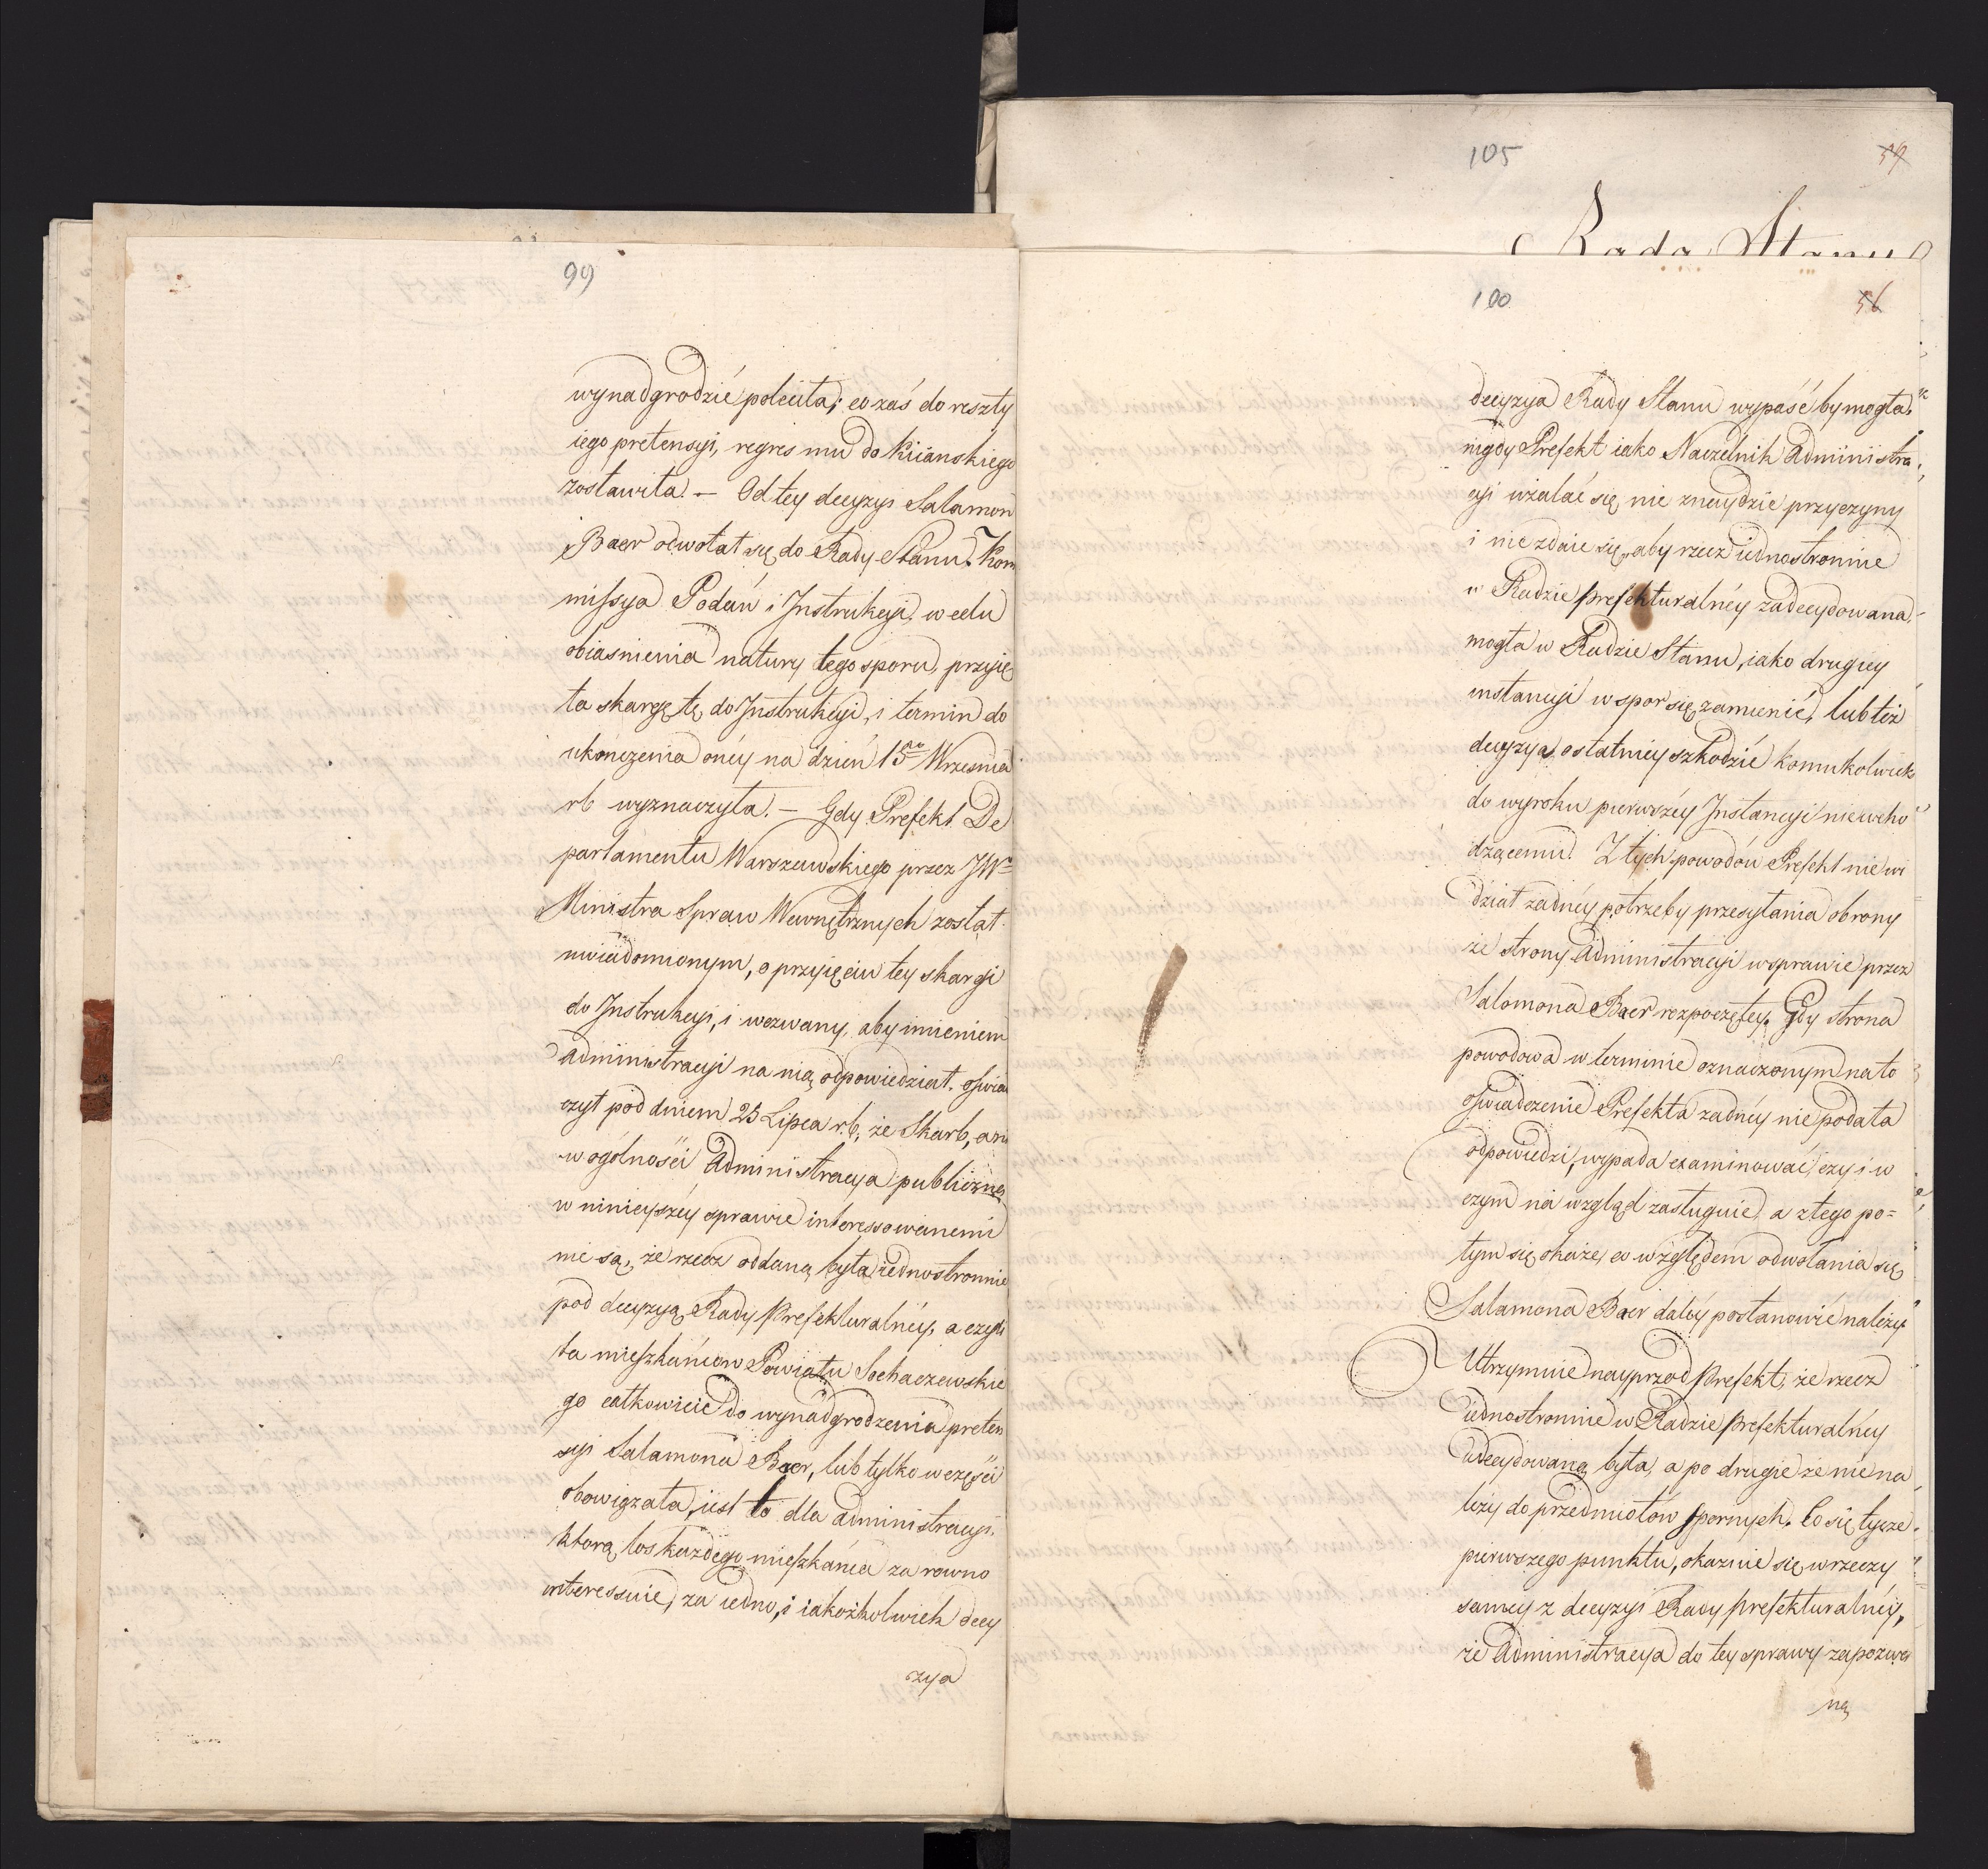 99
wynadgrodzić poleciła; co zaś do reszty
iego pretensyi, regres mu do Kiianskiego
zostawiła. — Od tey decyzyi Salamon
Baer odwołał się do Rady Stanu. Kom
missya Podań i Instrukcyi, w celu
obiasnienia natury tego sporu, przyię
ła skargę tę do Instrukcyi, i termin do
ukończenia onéy na dzień 15go Września
rb wyznaczyła. — Gdy Prefekt De
partamentu Warszawskiego przez JWo
Ministra Spraw Wewnętrznych został
uwiadomionym, o przyięciu tey skargi
do Instrukcyi, i wezwany, aby imieniem
Administracyi na nią odpowiedział. oswiad
czył pod dniem 25 Lipca r.b, że Skarb, ani
w ogólności Administracya publiczna
w ninieyszéy sprawie interessowanemi
nie są, że rzecz oddaną była iednostronnie
pod decyzyą Rady Prefekturalnéy, a czyli
ta mieszkańcow Powiatu Sochaczewskie
go całkowicie do wynadgrodzenia preten
syi Salamona Baer, lub tylko w części
obowiązała, iest to dla administracyi
ktorą los każdego mieszkańca za rowno
interessuie, za iedno, i iakożkolwiek decy
zya
105
59
Rada Stanu
100
56
decyzya Rady Stanu wypaść by mogła,
nigdy Prefekt iako Naczelnik Administra
cyi użalać się nie znaydzie przyczyny
i nie zdaie się, aby rzecz iednostronnie
w Radzie prefekturalnéy zadecydowana,
mogła w Radzie Stanu, iako drugiey
instancyi w spor się zamienić, lub też
decyzya ostatniey szkodzić komukolwiek
do wyroku pierwszéy Instancyi niewcho
dzącemu. Z tych powodów Prefekt nie wi
dział żadnéy potrzeby przesyłania obrony
ze strony Administracyi w sprawie przez
Salomona Baer rozpoczętey. Gdy strona
powodowa w terminie oznaczonym na to
oświadczenie Prefekta żadnéy nie podała
odpowiedzi, wypada examinować, czy i w
czym na wzgląd zasługuie, a z tego po=
tym się okaże, co względem odwołania się
Salamona Baer daléy postanowić należy
Utrzymuie nayprzod Prefekt, że rzecz
iednostronnie w Radzie Prefekturalnéy
zdecydowaną była, a po drugie że nie na
leży do przedmiotów spornych. Co się tycze
pierwszego punktu, okazuie się w rzeczy
samey z decyzyi Rady prefekturalnéy,
że Administracya do tey sprawy zapozwa
ną